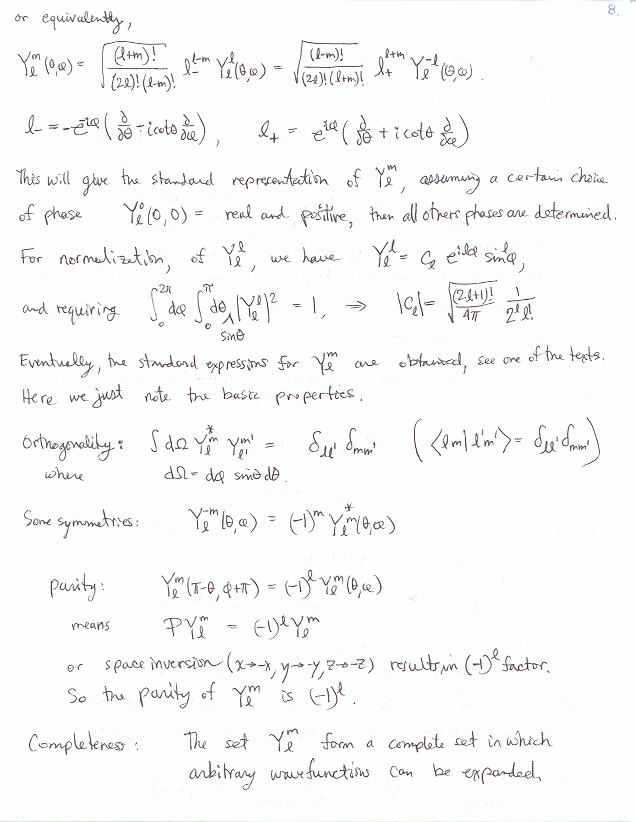 8.
or equivalently,
Y_ℓ^m(θ,φ) = √((ℓ+m)! / (2ℓ)!(ℓ-m)!) l_-^{ℓ-m} Y_ℓ^ℓ(θ,φ) = √((ℓ-m)! / (2ℓ)!(ℓ+m)!) l_+^{ℓ+m} Y_ℓ^{-ℓ}(θ,φ).
l_- = -e^{-iφ}(∂/∂θ - i cotθ ∂/∂φ), l_+ = e^{iφ}(∂/∂θ + i cotθ ∂/∂φ)
This will give the standard representation of Y_ℓ^m, assuming a certain choice
of phase Y_ℓ^0(0,0) = real and positive, then all others phases are determined.
For normalization, of Y_ℓ^ℓ, we have Y_ℓ^ℓ = C_ℓ e^{iℓφ} sin^ℓφ,
and requiring ∫_0^{2π} dφ ∫_0^π dθ sinθ |Y_ℓ^ℓ|² = 1, ⇒ |C_ℓ| = √((2ℓ+1)! / 4π) 1/(2^ℓ ℓ!)
Eventually, the standard expressions for Y_ℓ^m are obtained, see one of the texts.
Here we just note the basic properties.
Orthogonality: ∫dΩ Y_ℓ^m* Y_ℓ'^m' = δ_ℓℓ' δ_mm' (⟨ℓm|ℓ'm'⟩ = δ_ℓℓ' δ_mm')
where dΩ = dφ sinθ dθ.
Some symmetries: Y_ℓ^{-m}(θ,φ) = (-1)^m Y_ℓ^m*(θ,φ)
parity: Y_ℓ^m(π-θ, φ+π) = (-1)^ℓ Y_ℓ^m(θ,φ)
means PY_ℓ^m = (-1)^ℓ Y_ℓ^m
or space inversion (x→-x, y→-y, z→-z) results in (-1)^ℓ factor.
So the parity of Y_ℓ^m is (-1)^ℓ.
Completeness: The set Y_ℓ^m form a complete set in which
arbitrary wavefunctions can be expanded.